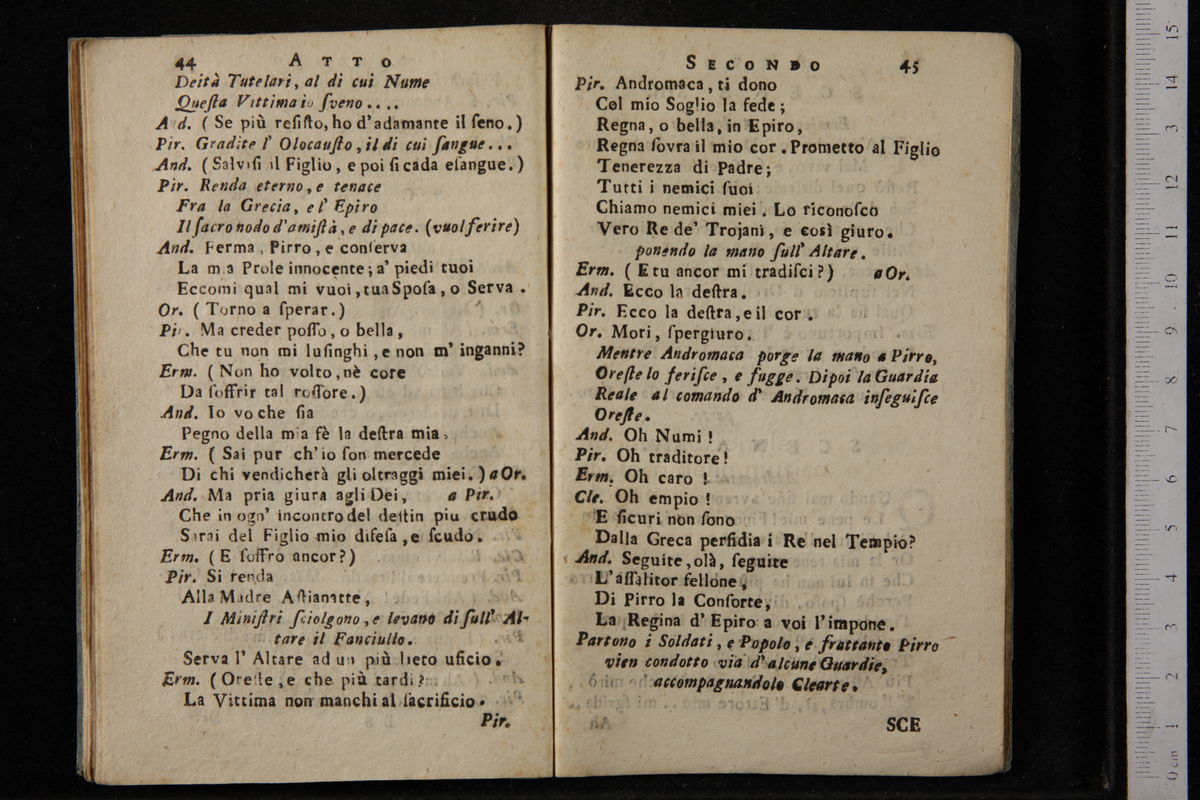 44 ATTO
Deità Tutelari, al di cui Nume
Queſta Vittima io ſveno....
A d. ( Se più reſiſto, ho d'adamante il ſeno.)
Pir. Gradite l' Olocauſto, il di cui ſangue...
And. (Salviſi il Figlio, e poi ſi cada eſangue.)
Pir. Renda eterno, e tenace
Fra la Grecia, e l' Epiro
Il ſacro nodo d'amiſtà, e di pace. (vuol ferire)
And. Ferma, Pirro, e conſerva
La mia Prole innocente; a' piedi tuoi
Eccomi qual mi vuoi, tua Spoſa, o Serva.
Or. ( Torno a ſperar.)
Pir. Ma creder poſſo, o bella,
Che tu non mi luſinghi, e non m' inganni?
Erm. (Non ho volto, nè core
Da ſoffrir tal roſſore.)
And. Io vo che ſia
Pegno della mia fè la deſtra mia,
Erm. ( Sai pur ch'io ſon mercede
Di chi vendicherà gli oltraggi miei.) a Or.
And. Ma pria giura agli Dei, a Pir.
Che in ogn' incontro del deſtin piu crudo
Sarai del Figlio mio difeſa, e ſcudo.
Erm. ( E ſoffro ancor?)
Pir. Si renda
Alla Madre Aſtianatte,
I Miniſtri ſciolgono, e levano di ſull' Al-
tare il Fanciullo.
Serva l' Altare ad un più lieto uficio.
Erm. ( Oreſte, e che più tardi?
La Vittima non manchi al ſacrificio.
Pir.
SECONDO 45
Pir. Andromaca, ti dono
Col mio Soglio la fede;
Regna, o bella, in Epiro,
Regna ſovra il mio cor. Prometto al Figlio
Tenerezza di Padre;
Tutti i nemici ſuoi
Chiamo nemici miei. Lo riconoſco
Vero Re de' Trojani, e così giuro.
ponendo la mano ſull' Altare.
Erm. ( E tu ancor mi tradiſci?) a Or.
And. Ecco la deſtra.
Pir. Ecco la deſtra, e il cor.
Or. Mori, ſpergiuro.
Mentre Andromaca porge la mano a Pirro,
Oreſte lo feriſce, e fugge. Dipoi la Guardia
Reale al comando d' Andromaca inſeguiſce
Oreſte.
And. Oh Numi!
Pir. Oh traditore!
Erm. Oh caro!
Cle. Oh empio!
E ſicuri non ſono
Dalla Greca perfidia i Re nel Tempio?
And. Seguite, olà, ſeguite
L'aſſalitor fellone,
Di Pirro la Conſorte,
La Regina d' Epiro a voi l'impone.
Partono i Soldati, e Popolo, e frattanto Pirro
vien condotto via d'alcune Guardie,
accompagnandolo Clearte.
SCE